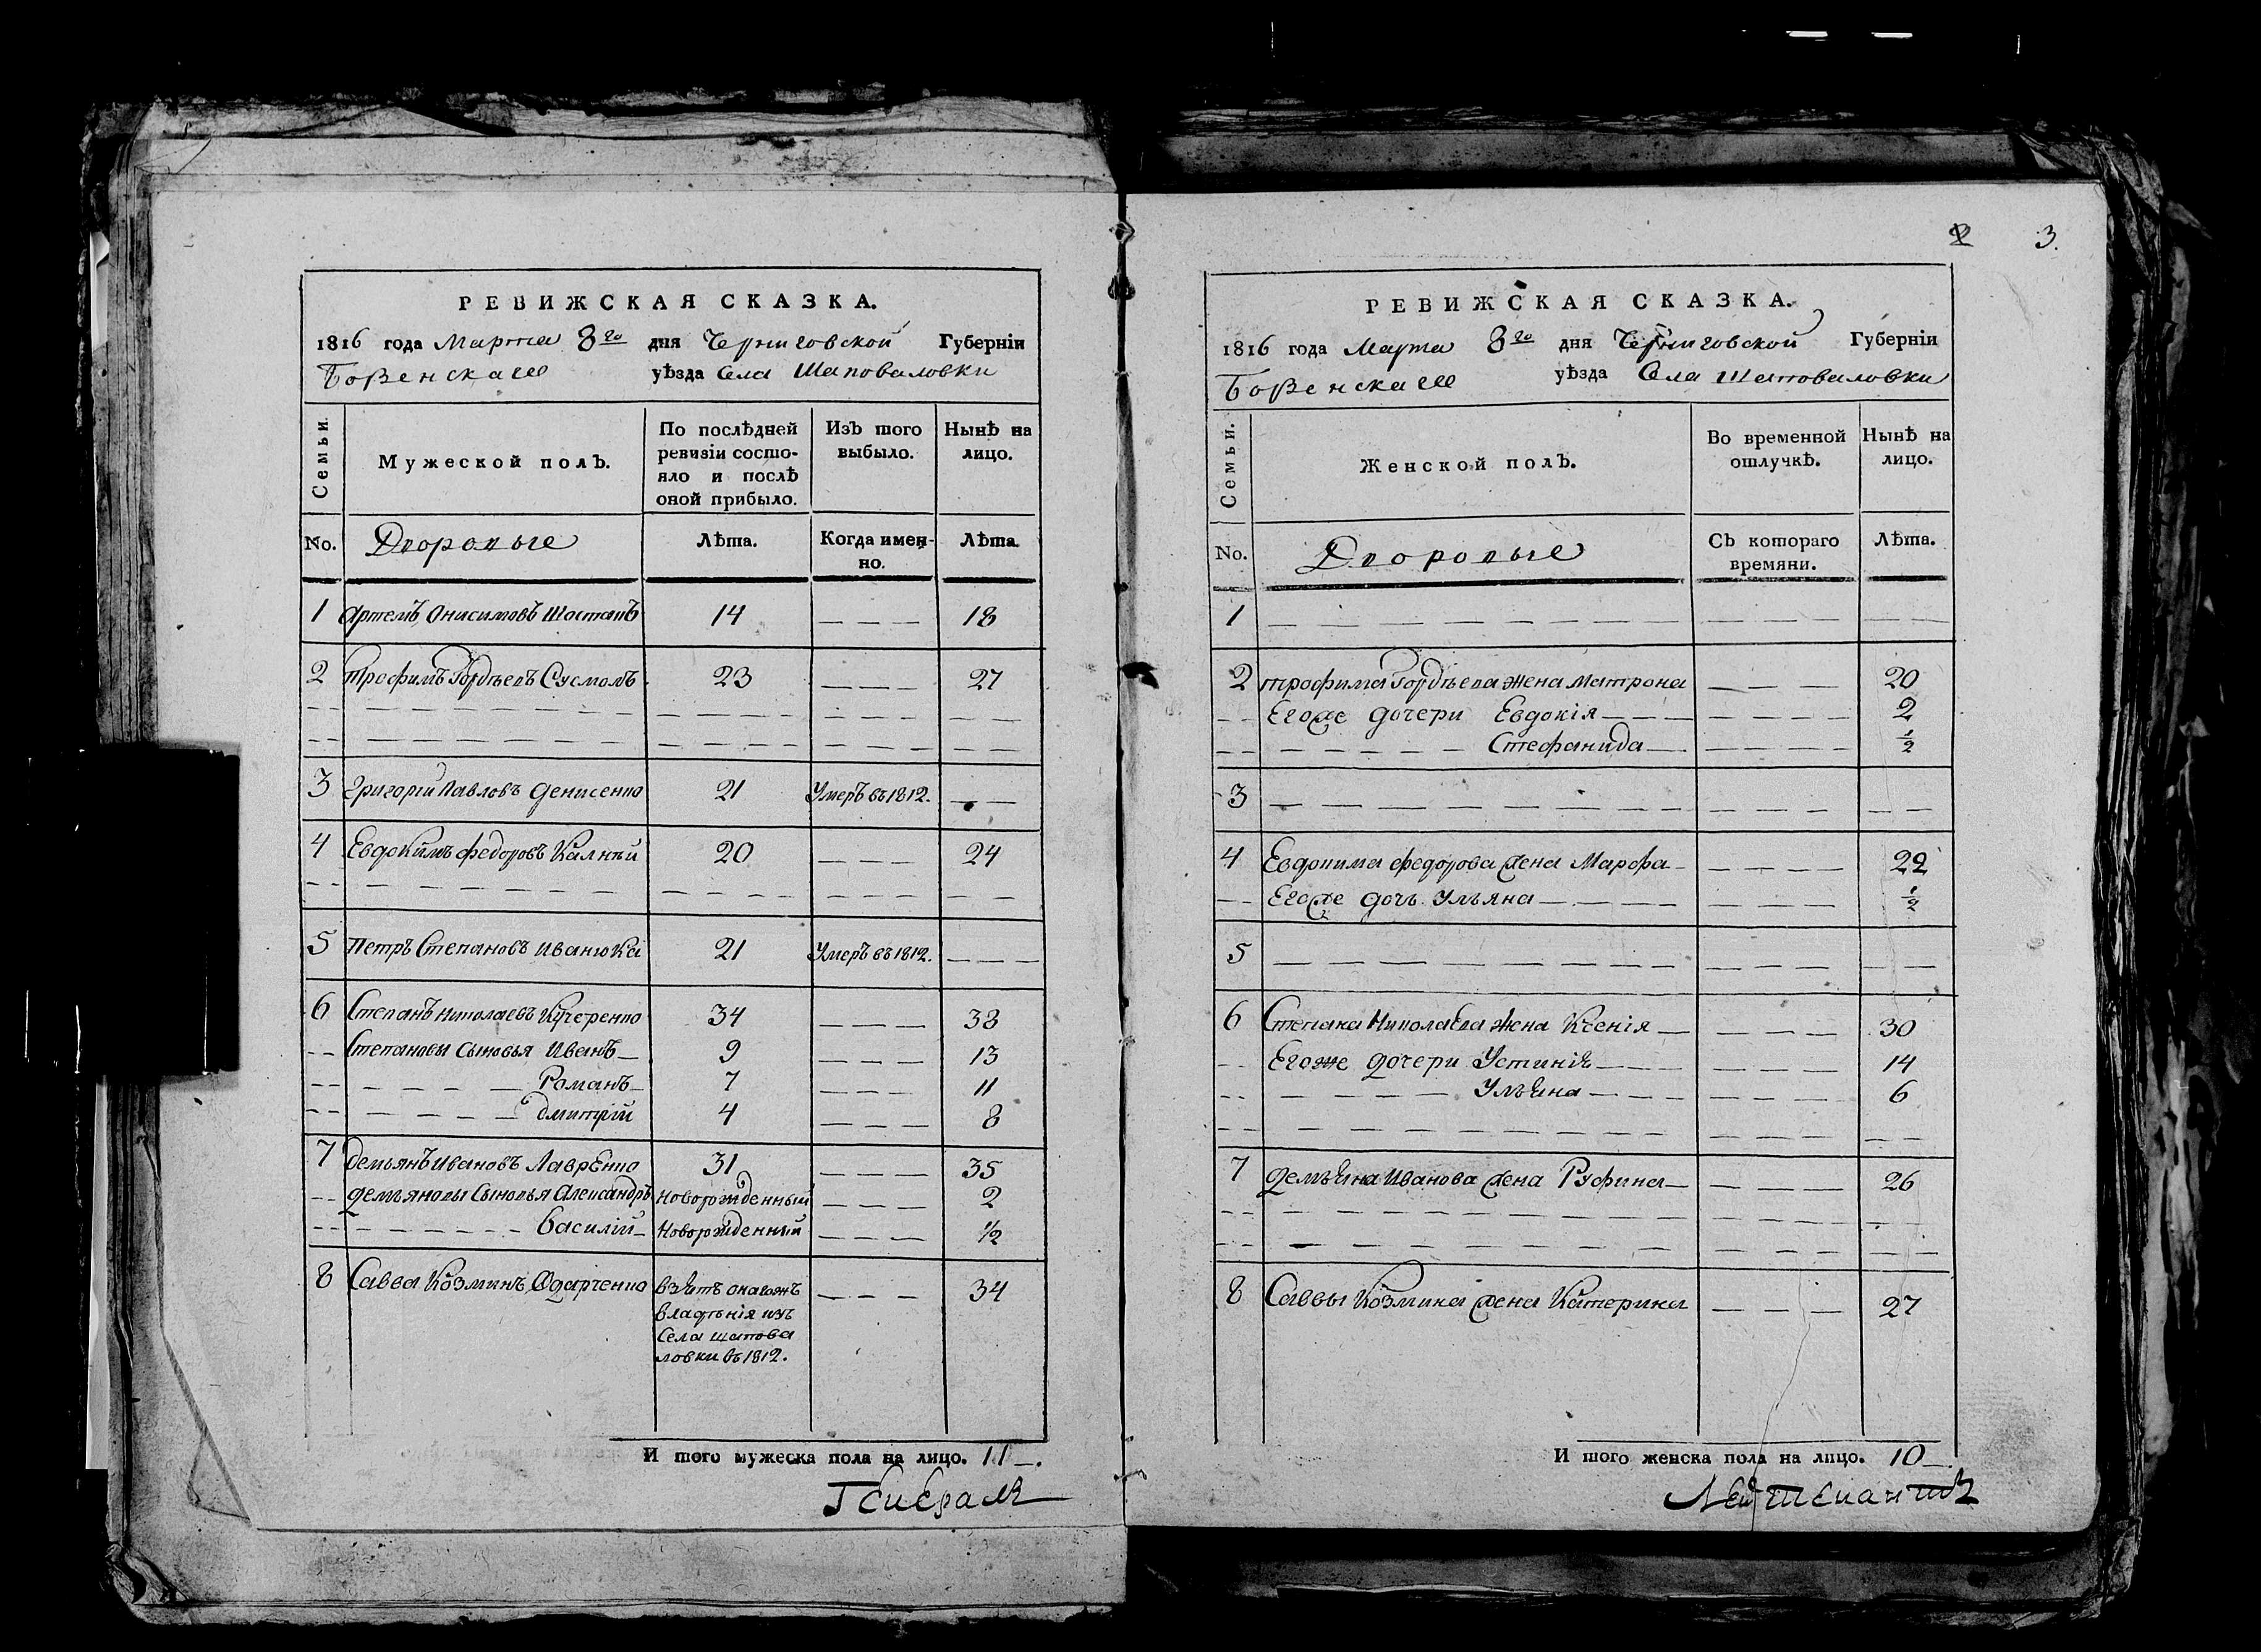 РЕВИЖСКАЯ СКАЗКА.
1816 года Марта 8го дня Черниговской Губерніи
Борзенскаго уѣзда Села Шаповаловки
Семьи.
Мужеской полъ.
По послѣдней ревизіи состояло и послѣ оной прибыло.
Изъ того выбыло.
Нынѣ на лицо.
No. Дворовые Лѣта. Когда именно. Лѣта
1 Артемъ Онисимовъ Шостакъ 14 — — — 18
2 Трофимъ Гордѣевъ Сусмолъ 23 — — — 27
3 Григорій Павловъ Денисенко 21 Умеръ въ 1812. — —
4 Евдокимъ Федоровъ Калный 20 — — — 24
5 Петръ Степановъ Иванюка 21 Умеръ въ 1812. — — —
6 Степанъ Николаевъ Кучеренко 34 — — — 38
Степановы сыновья Иванъ 9 — — — 13
Романъ 7 — — — 11
Дмитрій 4 — — — 8
7 Демьянъ Ивановъ Лавренко 31 — — — 35
Демьяновы Сыновья Александръ Новорожденный — — — 2
Василій Новорожденный — — — 1/2
8 Савва Козминъ Одарченко взятъ — — — 34
владѣнія изъ
Села Шапова
ловки въ 1812.
И того мужеска пола на лицо. 11 —.
Генералъ
3.
РЕВИЖСКАЯ СКАЗКА.
1816 года Марта 8го дня Черниговской Губерніи
Борзенскаго уѣзда Села Шаповаловки
Семьи.
Женской полъ.
Во временной отлучкѣ.
Нынѣ на лицо.
No. Дворовые Съ котораго времяни. Лѣта.
1 — — —
2 Трофима Гордѣева жена Матрона — — — 20
Егоже дочери Евдокія — — — 2
Стефанида — — — 1/2
3 — — —
4 Евдокима Федорова жена Марфа — — — 22
Егоже дочь Ульяна — — — 1/2
5 — — —
6 Степана Николаева жена Ксенія — — — 30
Егоже дочери Устинія — — — 14
Ульяна — — — 6
7 Демьяна Иванова жена Руфина — — — 26
8 Саввы Козмина жена Катерина — — — 27
И того женска пола на лицо. 10 —
Лейтенантъ